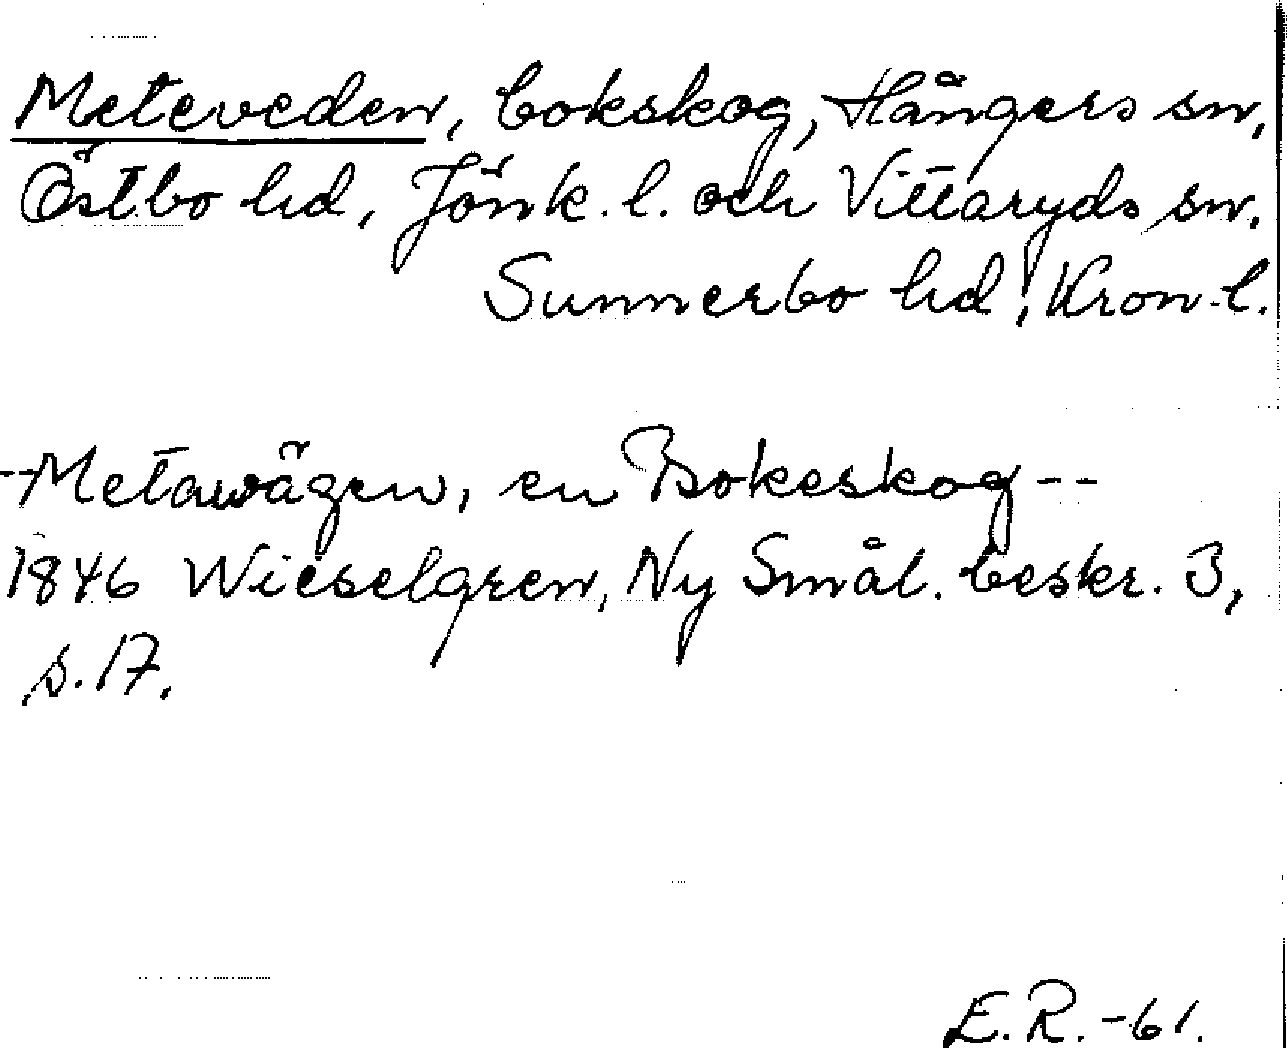 Meteveden, bokskog, Hångers sn,
Östbo hd, Jönk. l. och Vittaryds sn.
Sunnerbo hd, Kron. l.
--Metawägen, en Bokeskog--
1846 Wieselgren, Ny Smål. beskr. 3,
s. 17.
E.R.-61.